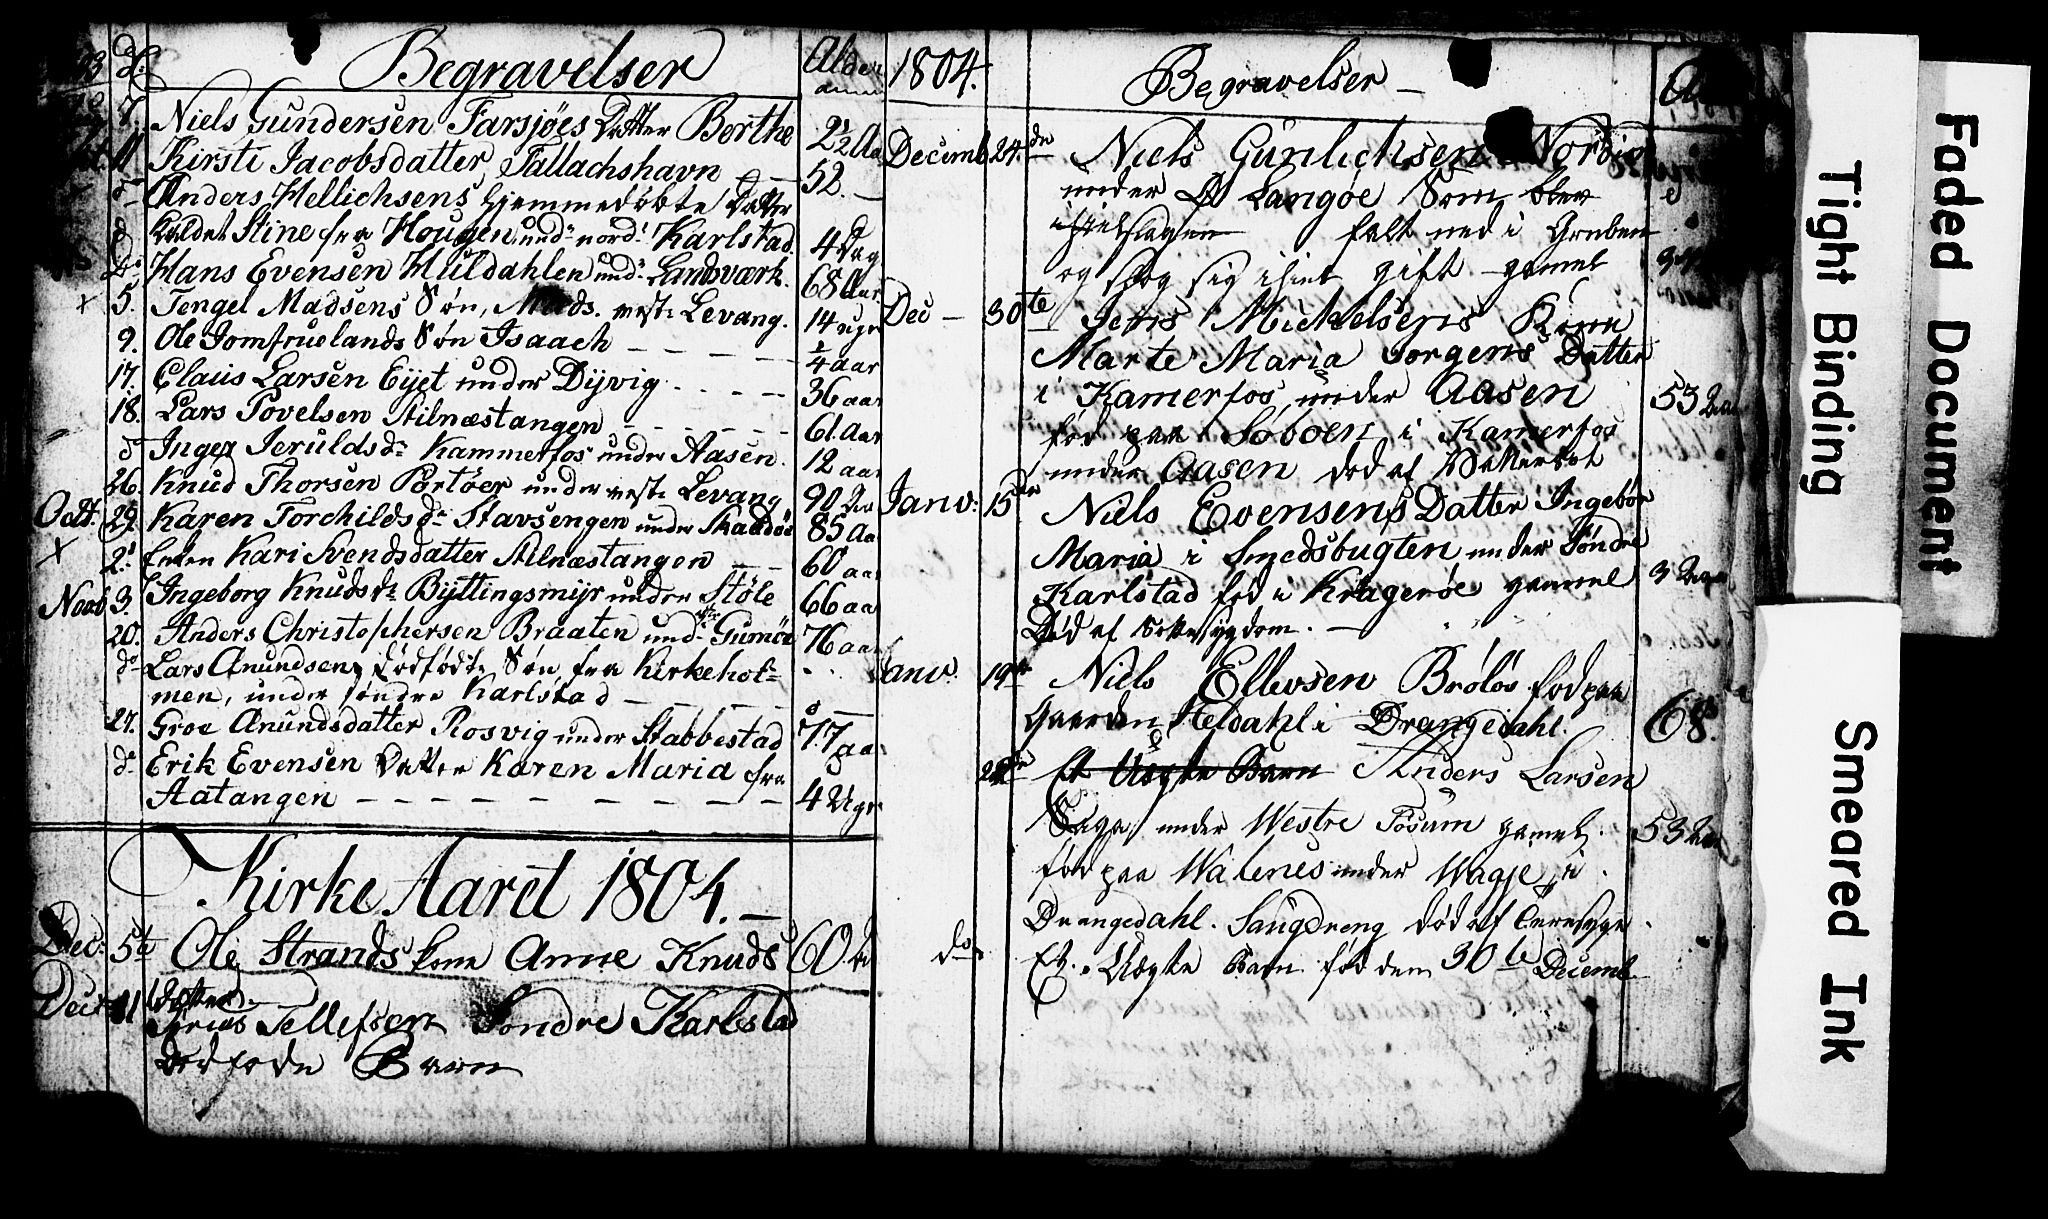 Begravelser
Alder
7. Niels Gundersen Farsjöes Datter Berthe 2½ Aar
11. Kirsti Jacobsdatter, Tallachshavn 52.
Anders Hellichsens hjemmedöbte Datter
kaldet Stine fra Hougen und: nord: Karlstad. 4 Dag
Hans Evensen Huldahlen und: Landsværk. 68 Aar
5. Tengel Madsens Sön, Mads. vest: Levang. 14 uger
9. Ole Jomfruelands Sön Isaach ¼ aar
17. Claus Larsen Eijet under Dijvig 36 aar
18. Lars Povelsen Stilnæstangen 61 Aar
d: Inger Jeruldsd: Kammerfos under Aasen. 12 aar
26. Knud Thorsen Portöer under vest: Levang 90 Aar
Octt. 29. Karen Torchildsd: Stavsengen under Skaadöe 85 Aa
2: Enken Kari Svendsdatter Stilnæstangen 60 aar
Novb 3. Ingeborg Knudsd: Byttingsmijr under Stöle 66 aa
20. Anders Christophersen Braaten und: Gumöe 76 aar
d: Lars Anundsens dödfödte Sön fra Kirkehol=
men, under söndre Karlstad
27. Groe Anundsdatter Rosvig under Stabbestad 77 aar
d: Erik Evensen Datter Karen Maria fra
Aatangen 4 Uger
Kirke Aaret 1804.
Dec: 5te Ole Strands kone Anne Knuds 60 Aar
datter
Decr 11 Tellefsen Söndre Karlstad
dödföde Barn
1804.
Begravelser
Decemb 24de Niels Gunlichsen Norvig
under Langöe Som blev
ihielslagen falt ned i Gruben
og slog sig ihiel gift gamel
Dec 30te Jens Mickelsens Kone
Marte Maria Jorgens Datter
i Kamerfos under Aasen 53 Aar
föd paa Söboen i Kamerfos
under Aasen död af
Janv: 15de Niels Evensens Datter Ingebör
Maria i Smedsbugten under Söndre
Karlstad föd i Kragerøe gammel 3 Uger
Död af
Janv: 19de Niels Ellevsen Brölös föd paa
Gaarden Heldahl i Drangedahl. 68.
Et Uægte Barn Anders Larsen
Saga under Westre Tosum gamel 53 Aar
föd paa Walenes under Wagje i
Drangedahl. Saugdreng död af
do Et Uægte Barn föd dem 30te Decemb
Faded Document
Tight Binding
Smeared Ink